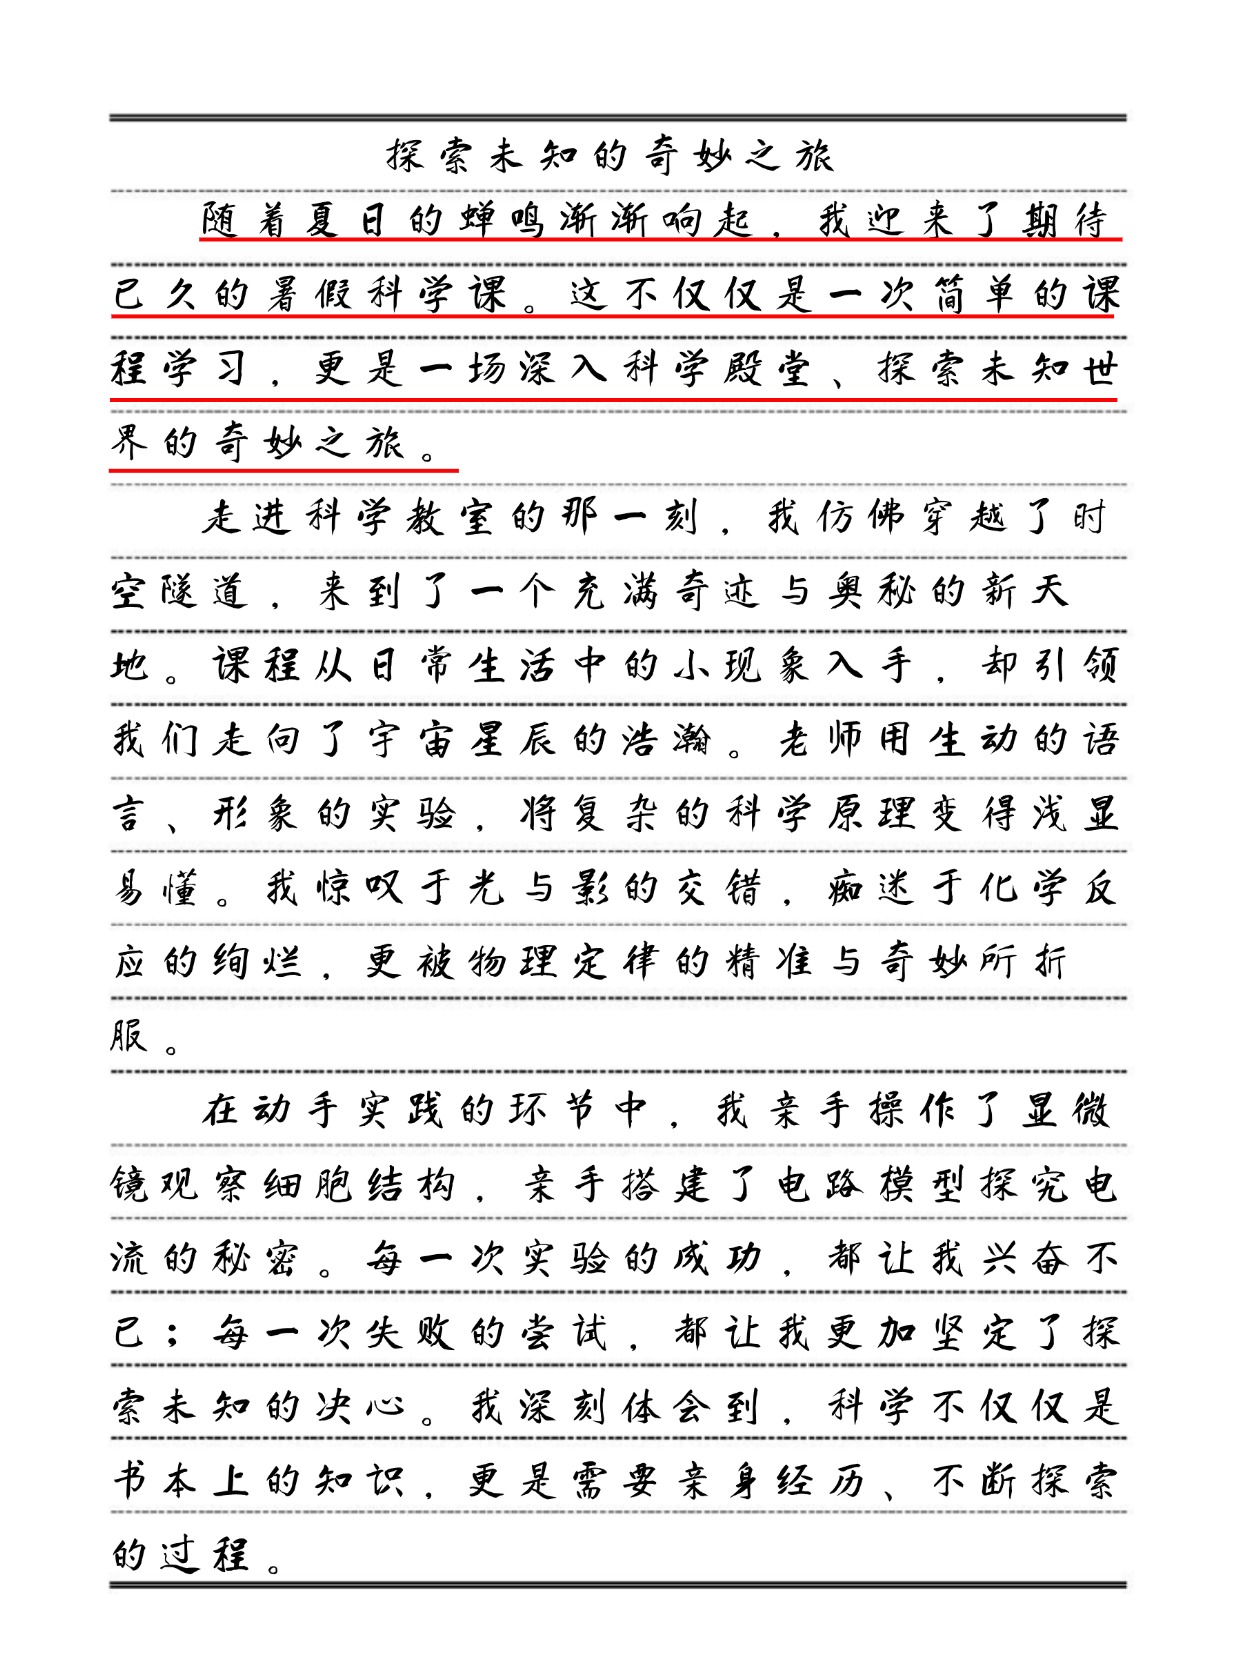 探索未知的奇妙之旅
随着夏日的蝉鸣渐渐响起，我迎来了期待
已久的暑假科学课。这不仅仅是一次简单的课
程学习，更是一场深入科学殿堂、探索未知世
界的奇妙之旅。
走进科学教室的那一刻，我仿佛穿越了时
空隧道，来到了一个充满奇迹与奥秘的新天
地。课程从日常生活中的小现象入手，却引领
我们走向了宇宙星辰的浩瀚。老师用生动的语
言、形象的实验，将复杂的科学原理变得浅显
易懂。我惊叹于光与影的交错，痴迷于化学反
应的绚烂，更被物理定律的精准与奇妙所折
服。
在动手实践的环节中，我亲手操作了显微
镜观察细胞结构，亲手搭建了电路模型探究电
流的秘密。每一次实验的成功，都让我兴奋不
已；每一次失败的尝试，都让我更加坚定了探
索未知的决心。我深刻体会到，科学不仅仅是
书本上的知识，更是需要亲身经历、不断探索
的过程。